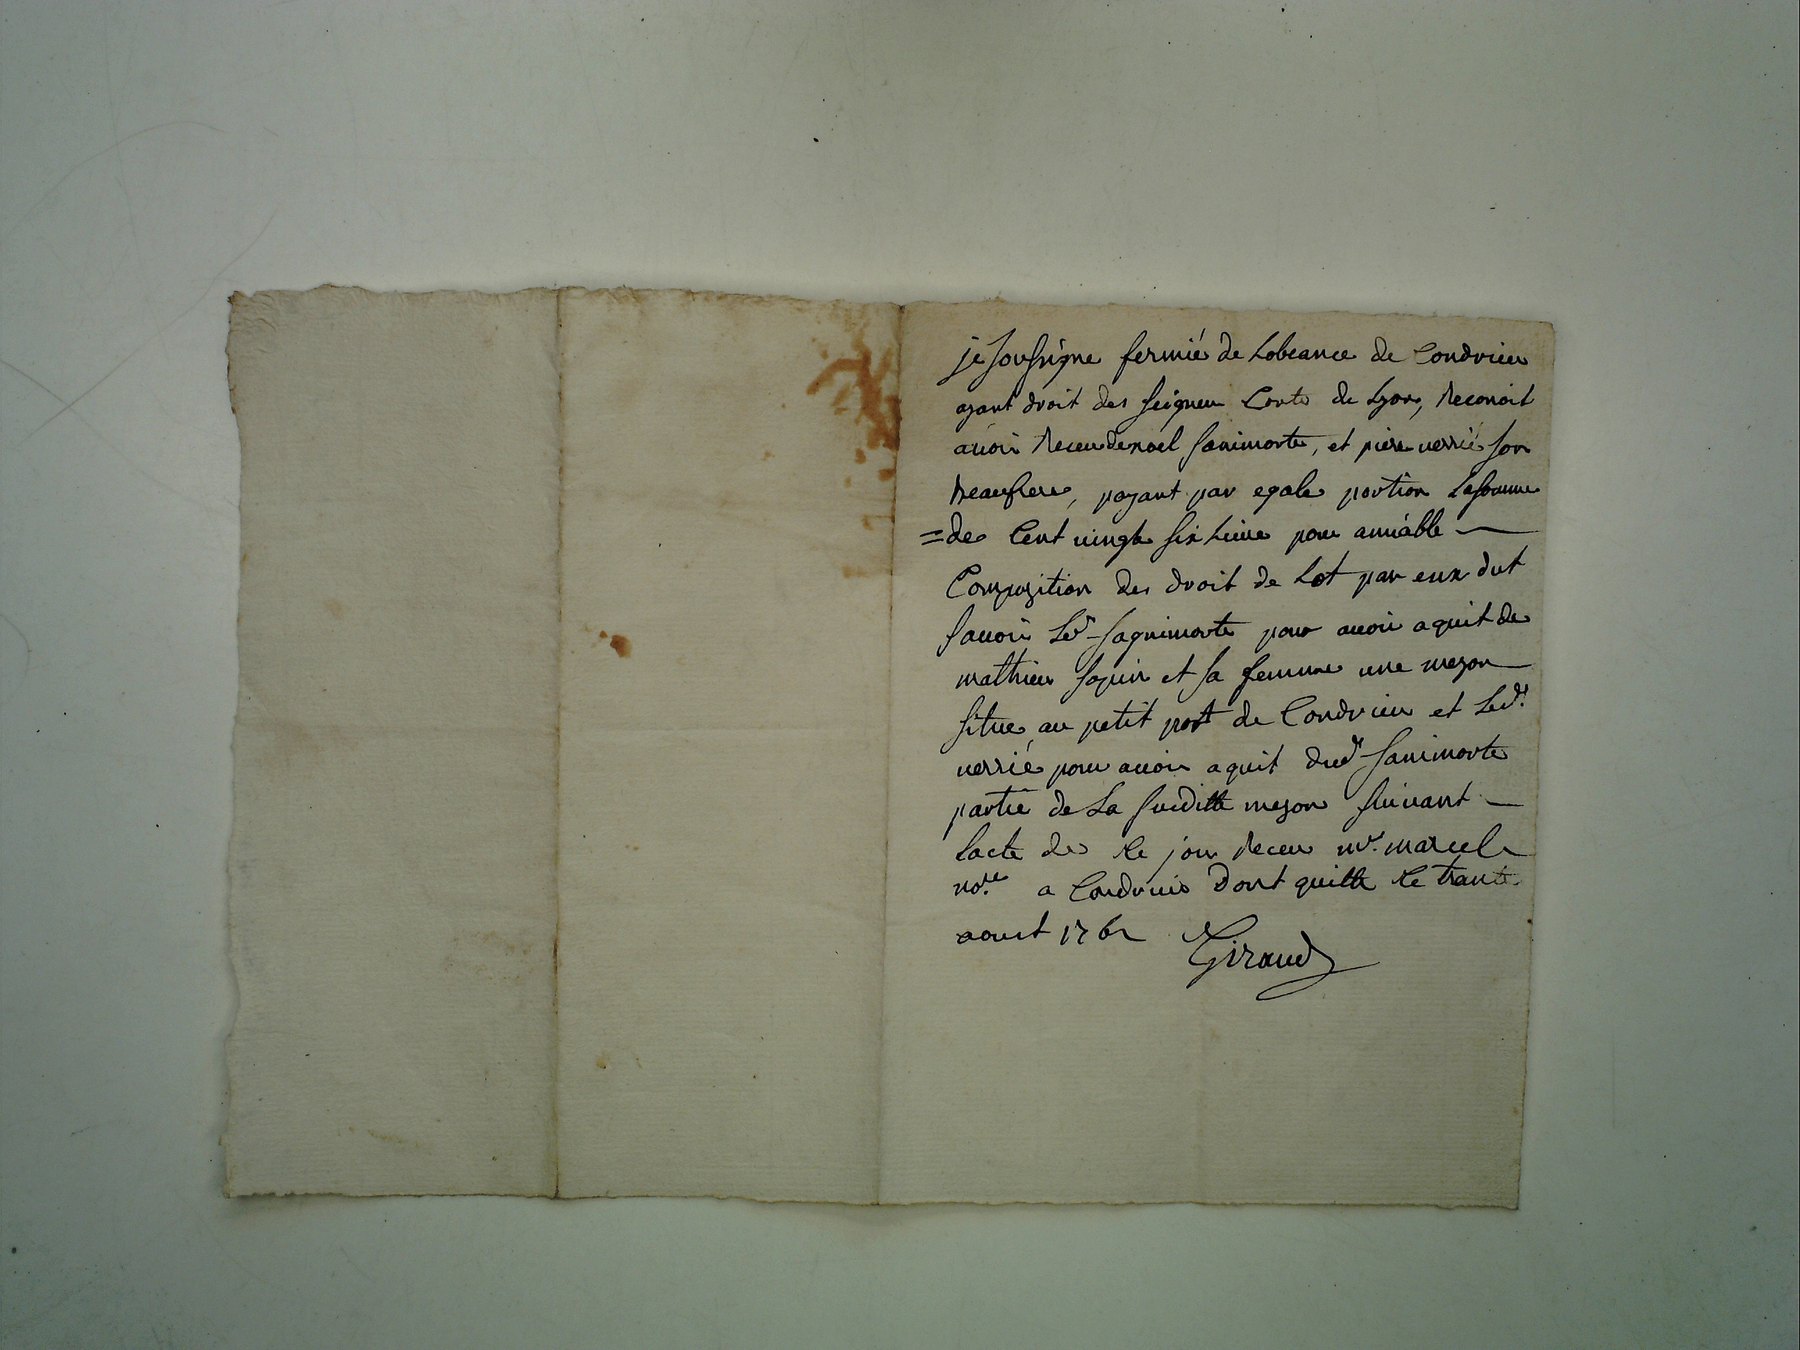 je sousigne fermié de Lobeance de Condrieu
ayant droit des seigneu Conte de Lyon, Reconoit
avoir Receu de noel sanimorte, et piere verrié son
beaufrere, payant par egale portion La somme
=de Cent vingt six Livre pour amiable —
Composition des droit de Lot par eux dut
savoir Led. sagnimorte pour avoir aquit de
mathieu sapin et sa femme une mezon
situe au petit port de Condrieu et Led.
verrié pour avoir aquit dud. sanimorte
partie de La suiditte mezon suivant —
lacte de Ce jour Receu mr. marcel
nore. a Condrieu Dont quitte Ce trante
aoust 176
Giraud